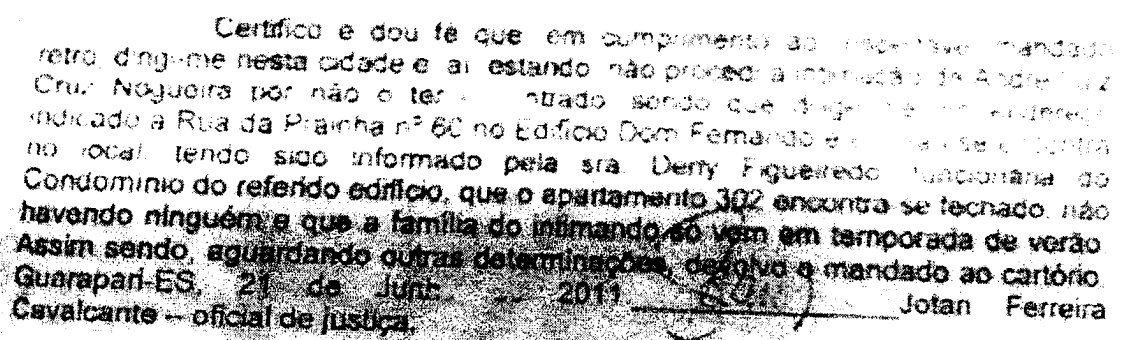 Certifico e dou fé que em cumprimento ao mandado
retro, dirigi-me nesta cidade e aí estando não procedi a intimação de Andre Luiz
Cruz Nogueira por não o ter sendo que
indicado a Rua da Prainha nº 60 no Edifício Dom Fernando e
no local, tendo sido informado pela sra. Derly Figueiredo funcionária do
Condomínio do referido edifício, que o apartamento 302 encontra se fechado, não
havendo ninguém e que a família do intimando só vem em temporada de verão
Assim sendo, aguardando outras determinações, devolvo o mandado ao cartório.
Guarapari-ES, 21 de 2011 Jotan Ferreira
Cavalcante – oficial de justiça.